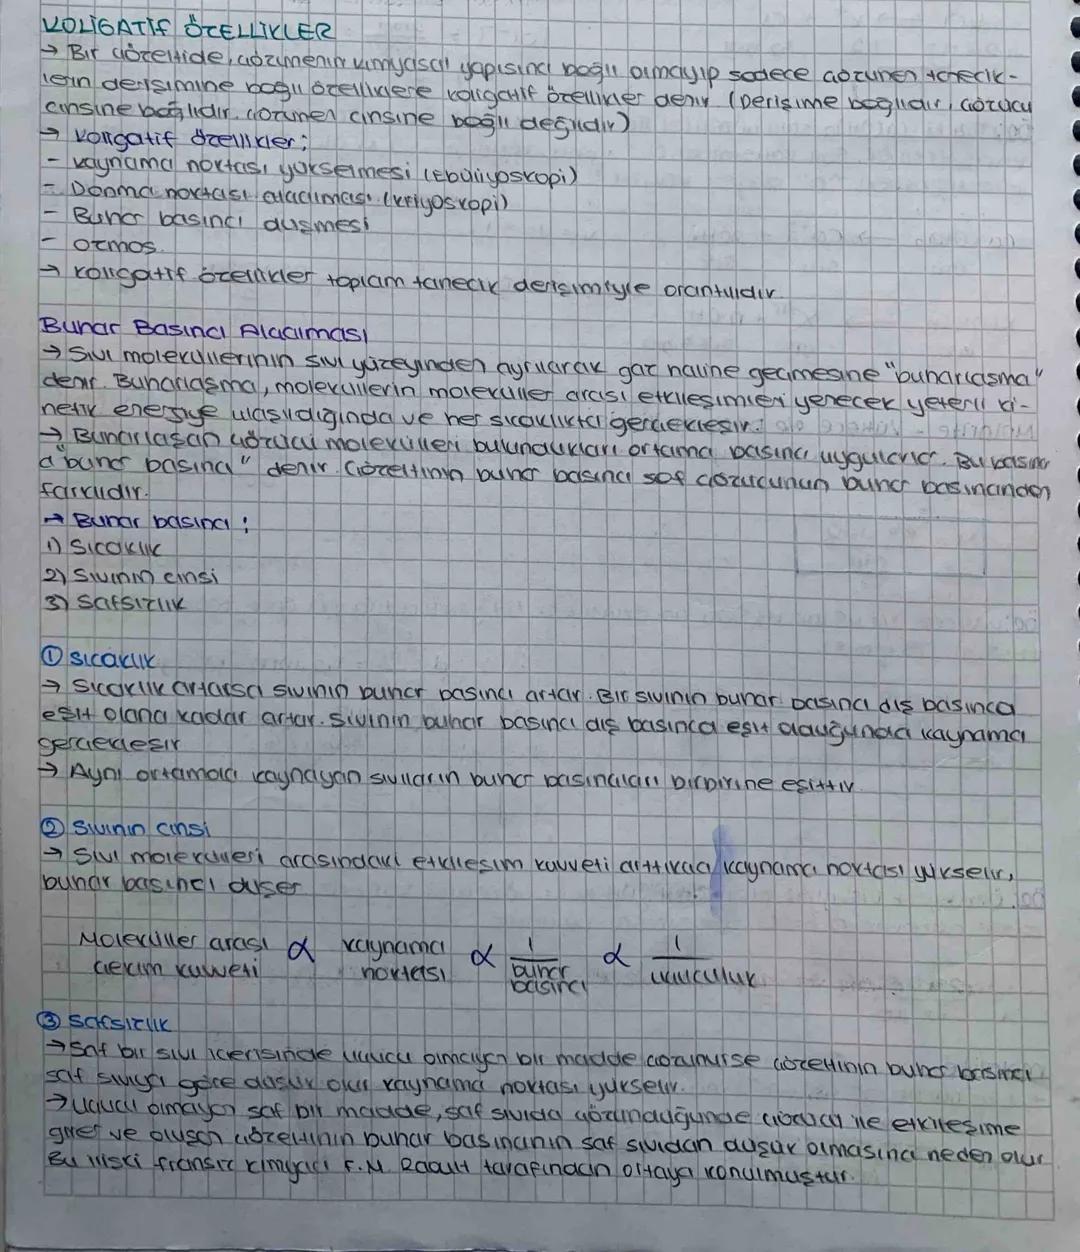 KOLİGATİF ÖZELLİKLER
→ Bir çözeltide, çözünenin kimyasal yapısına bağlı olmayıp sadece çözünen tanecik-
lerin derişimine bağlı özelliklere koligatif özellikler denir (Derişime bağlıdır, çözücü
cinsine bağlıdır çözünen cinsine bağlı değildir)
→ Koligatif özellikler;
- Kaynama noktası yükselmesi (Ebüliyoskopi)
- Donma noktası alçalması (Kriyoskopi)
- Buhar basıncı düşmesi
- Ozmos
→ Koligatif özellikler toplam tanecik derişimiyle orantılıdır.
Buhar Basıncı Alçalması
→ Sıvı moleküllerinin sıvı yüzeyinden ayrılarak gaz haline geçmesine "buharlaşma"
denir. Buharlaşma, moleküllerin moleküller arası etkileşimleri yenecek yeterli ki-
netik enerjiye ulaşıldığında ve her sıcaklıkta gerçekleşir.
→ Buharlaşan çözücü molekülleri bulundukları ortama basınç uygularlar. Bu basınc
a "buhar basıncı" denir. Çözeltinin buhar basıncı saf çözücünün buhar basıncından
farklıdır.
→ Buhar basıncı;
1) Sıcaklık
2) Sıvının cinsi
3) Safsızlık
① Sıcaklık
→ Sıcaklık artarsa sıvının buhar basıncı artar. Bir sıvının buharı basıncı dış basınca
eşit olana kadar artar. Sıvının buhar basıncı dış basınca eşit olduğunda kaynama
gerçekleşir
→ Aynı ortamda kaynayan sıvıların buhar basınçları birbirine eşittir.
② Sıvının cinsi
→ Sıvı molekülleri arasındaki etkileşim kuvveti arttıkça kaynama noktası yükselir,
buhar basıncı düşer
Moleküller arası çekim kuvveti α kaynama noktası α 1/buhar basıncı α 1/uçuculuk
③ Safsızlık
→ Saf bir sıvı içerisinde uçucu olmayan bir madde çözünürse çözeltinin buhar basıncı
saf sıvıya göre düşük olur kaynama noktası yükselir.
→ Uçucu olmayan saf bir madde, saf sıvıda çözündüğünde çözücü ile etkileşime
girer ve oluşan çözeltinin buhar basıncının saf sıvıdan düşük olmasına neden olur
Bu ilişki fransız kimyacı F.M. Raoult tarafından ortaya konulmuştur.